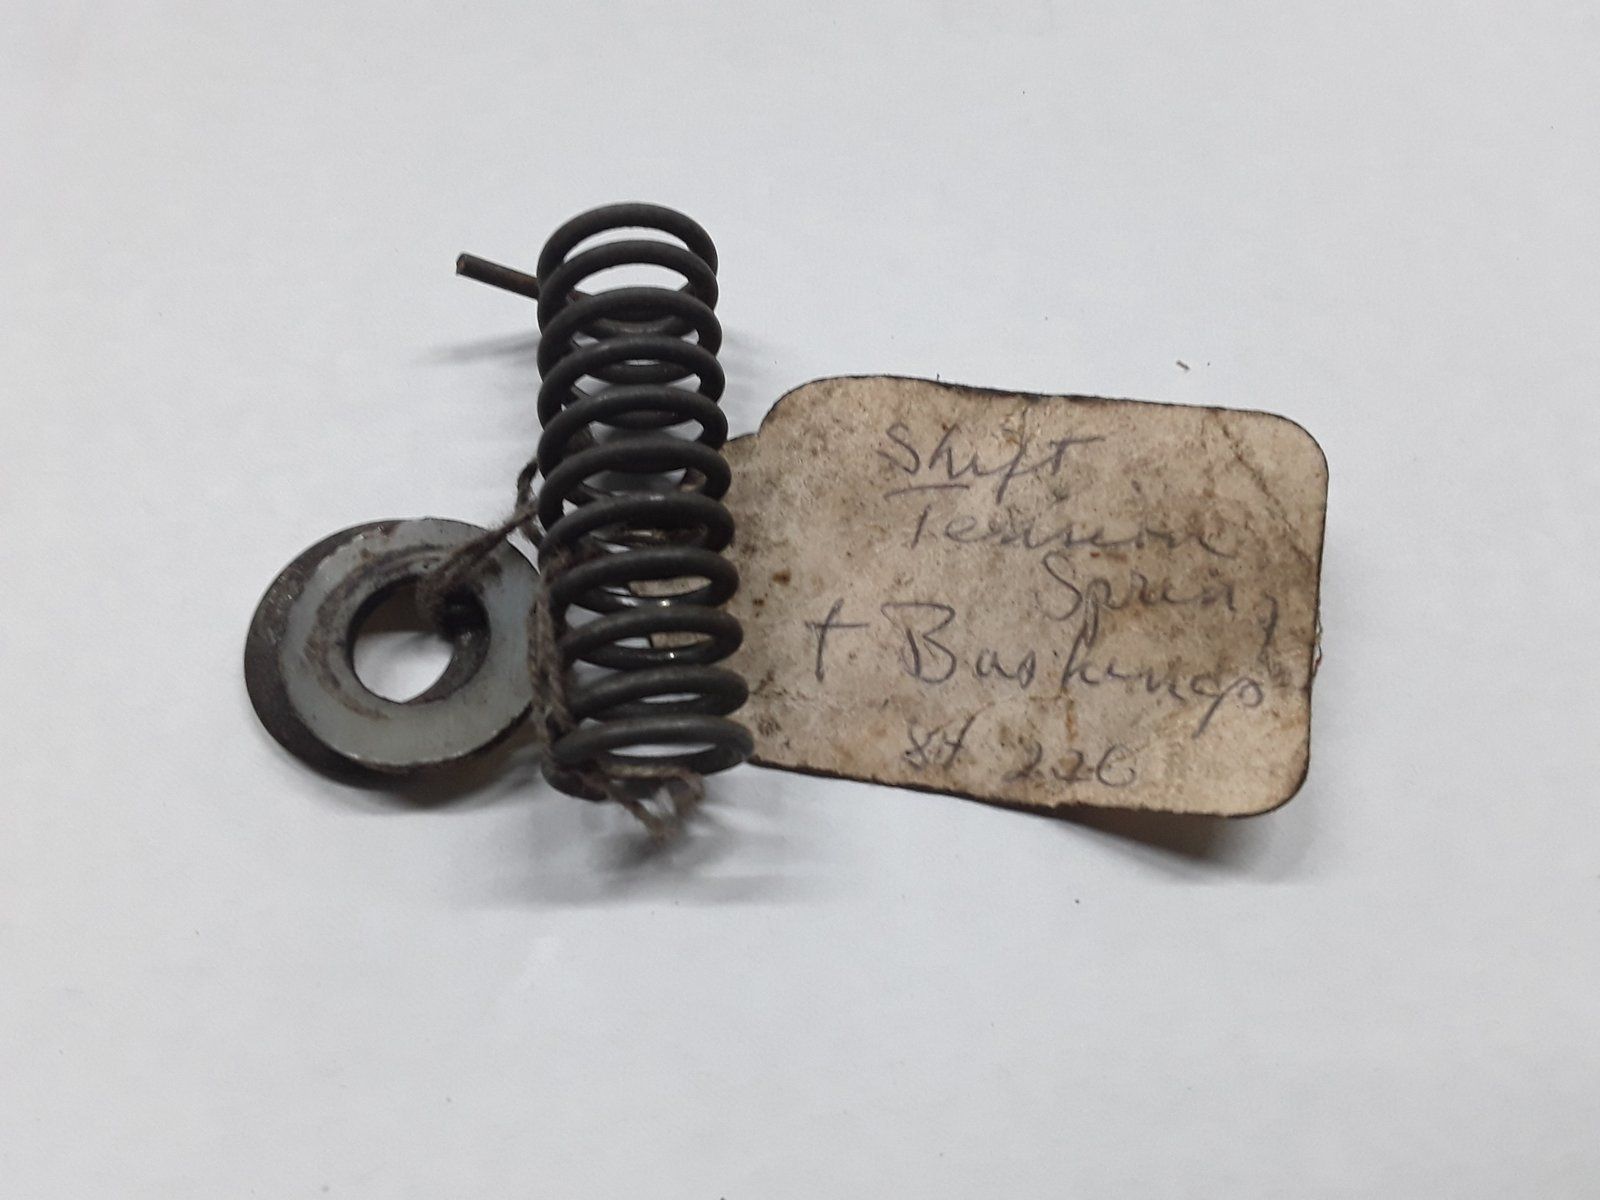 Shift
Tension
Spring
+ Bushings
84 226